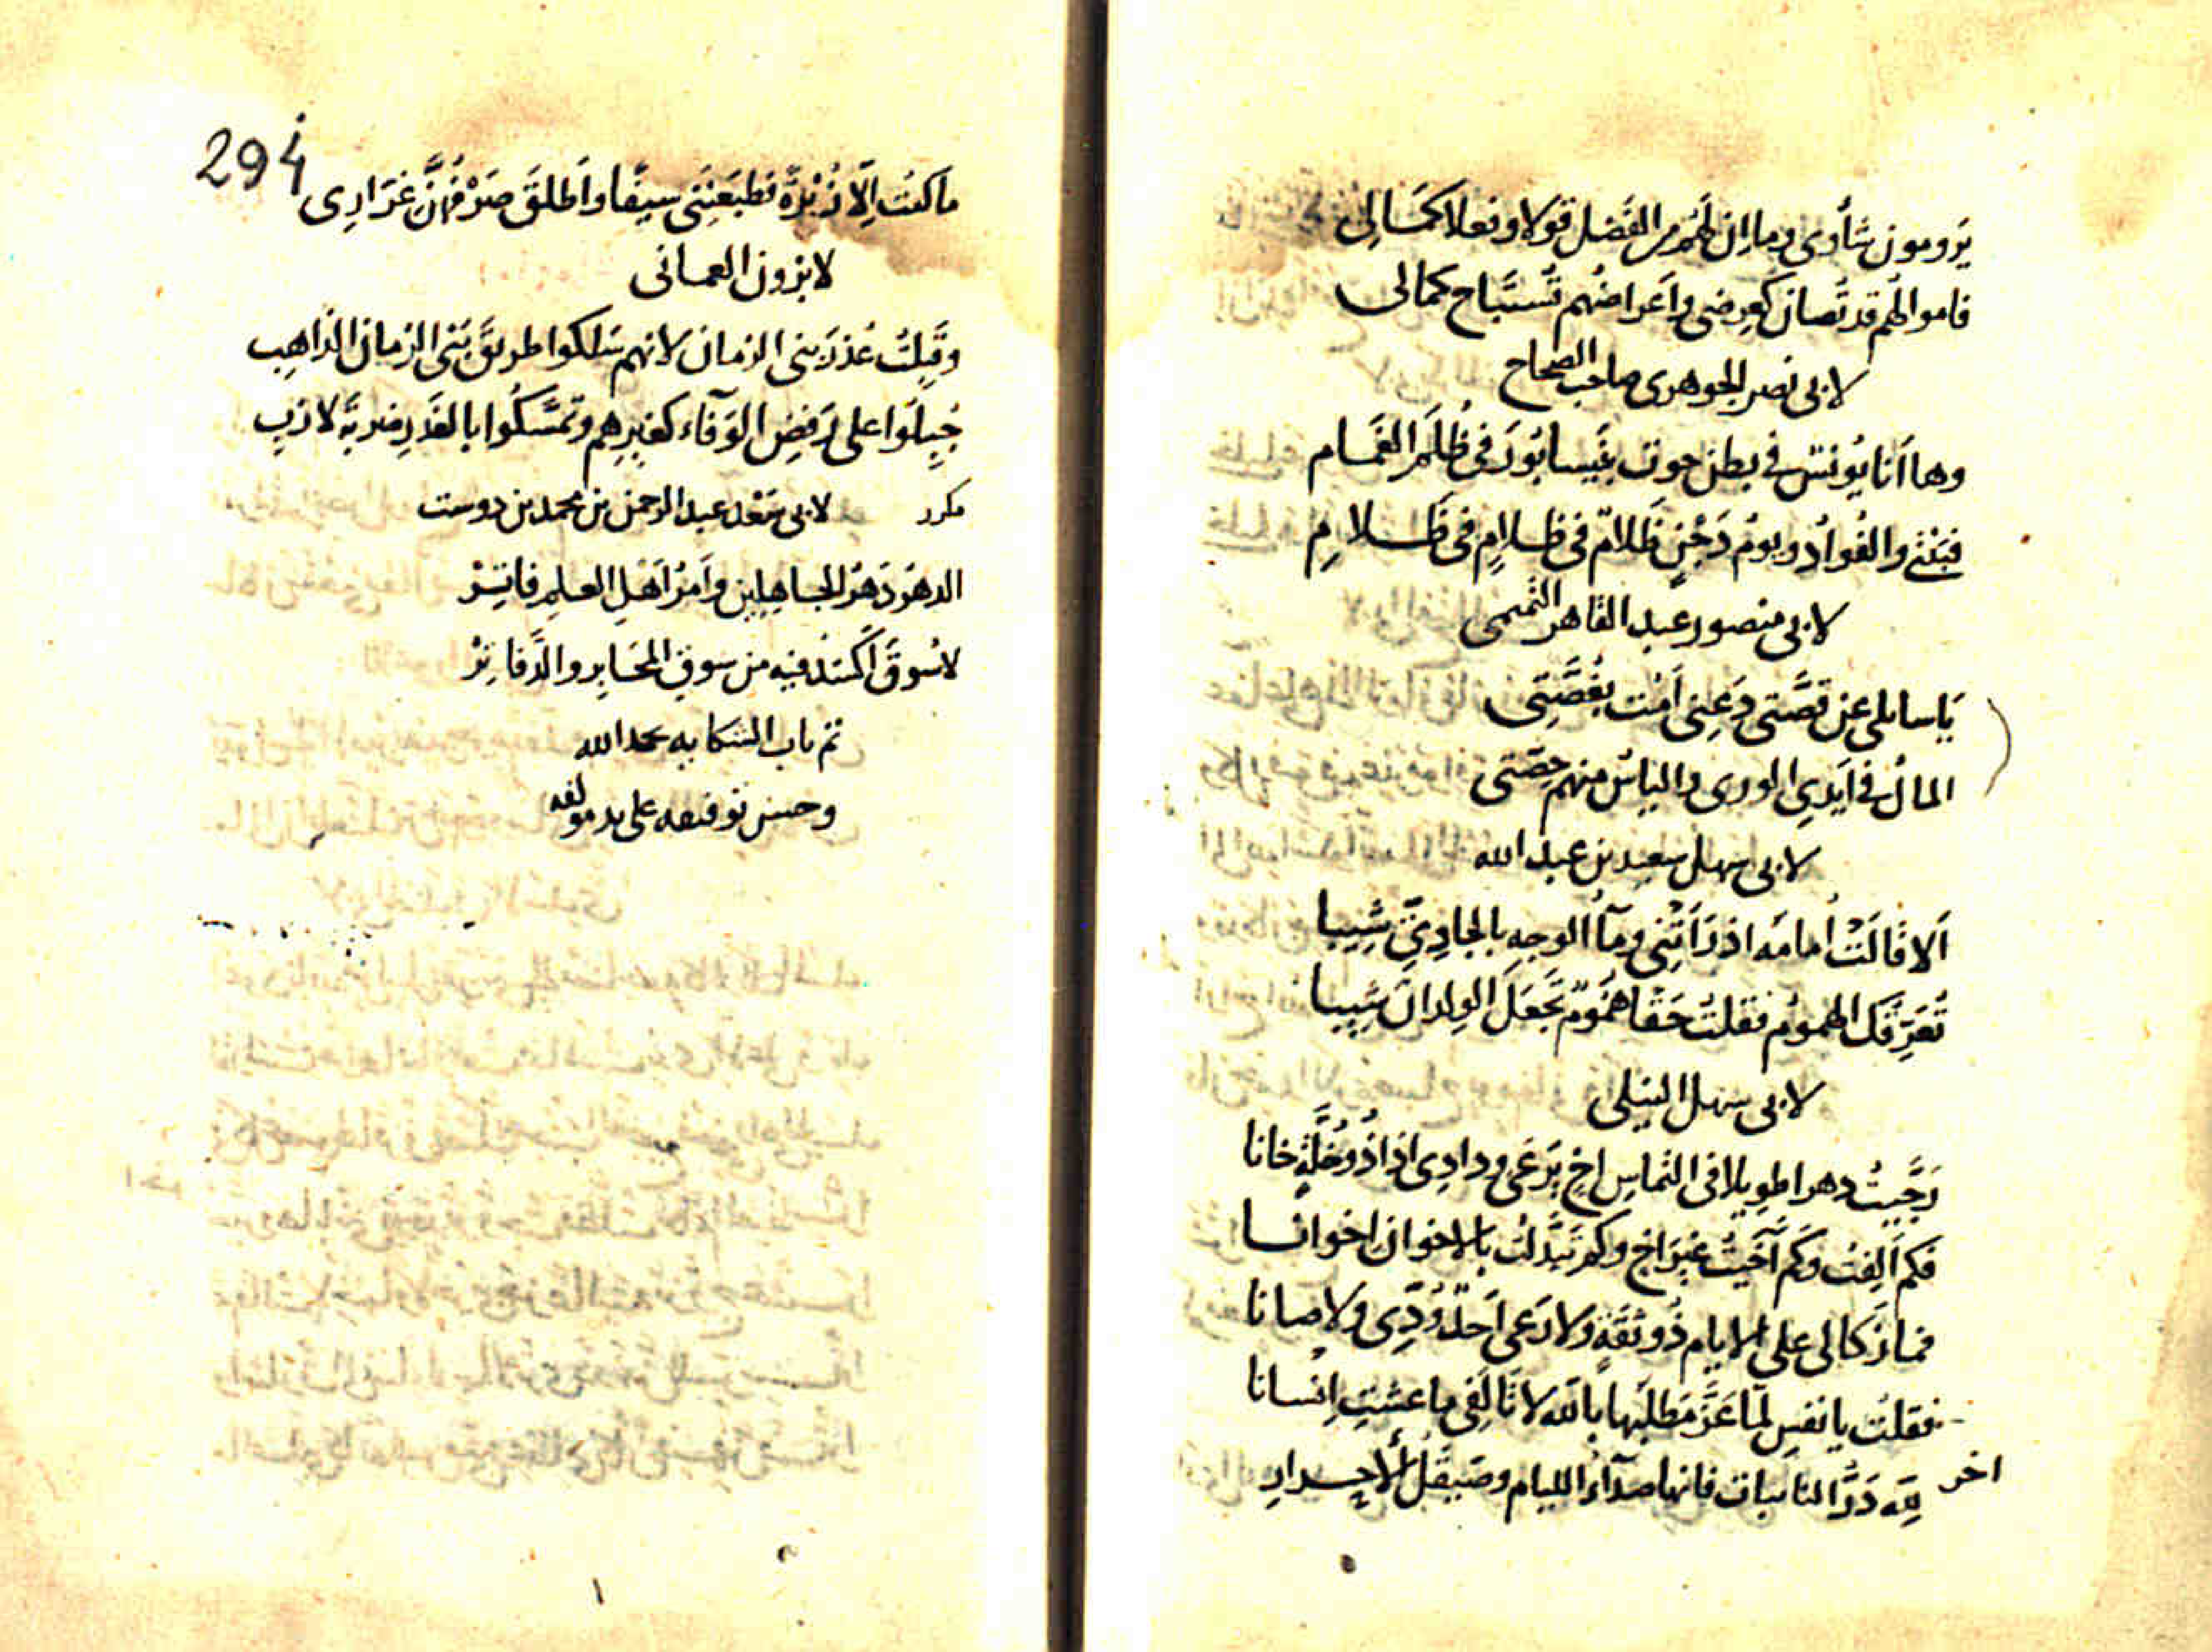 يَرومون شأوى وما ان لهم من الفَضل قَولا وفعلا كمَالِى
فاموالهم قد تُصان كعِرضى واَعراضهم تُستَباح كمالى
لابى نصر الجوهرى صاحب الصحاح
وها اَنا يُونسٌ فى بطن حوت بنَيسابُورَ فى ظُلَم الغَمام
فبَيْتى والفُوادُ ويومُ دَجْنٍ ظَلامٌ فى ظلامٍ فى ظَلامِ
لابى منصور عبد القاهر التميمى
يَا سايلى عن قصَّتى دَعِنى اَمُت بغُصَّتِى
المالُ فى اَيدِى الورى والياسُ منهم حِصَّتى
لابى سهل سعيد بن عبد الله
اَلا قالَتْ اُمامَه اذ رَاَتْنى ومآ الوجهِ بالجادِىّ شِيبا
تُعَرّفكَ الهمومُ فقلتُ حَقًا هُمُومٌ تجعَل الوِلدانَ شِيبا
لابى سهل النيلى
رَجَّيتُ دهرا طويلا فى التماسِ اخٍ يَرعَى ودادِى اذا ذُو خُلَّةٍ خانا
فكم اَلِفتُ وكم آخَيتُ غيرَ اخٍ وكم تبَدَّلتُ بالاخوان اخوانا
فما زَكا لى على الايام ذُو ثقَةٍ ولا رَعى اَحدٌ وُدِّى ولا صانا
فقلتُ يا نفسِ لمّا عَزَّ مَطلبُها بالله لا تالَفى ما عشتِ اِنسانا
اخر لِلّه دَرُّ النايبات فانها صدآءُ الليام وصَيقَلُ الاحرارِ
294
ما كنتُ اِلّا زُبْرةً فطَبَعنَنى سيفًا واَطلقَ صَرْفُهنَّ غرَارِى
لابزون العمانى
وقبِلتُ عُذرَ بنى الزمان لانهم سَلكوا طريقَ بَنى الزمان الذاهِب
جُبِلُوا على رَفضِ الوَفآء كغيرِهم وتمَسَّكُوا بالغَدرِ ضربةَ لازبِ
مكرر لابى سَعْد عبد الرحمن بن محمد بن دوست
الدهرُ دَهرُ الجاهلِين واَمرُ اَهْلِ العلمِ فاتِرْ
لا سُوقَ اَكسَدُ فيه من سوقِ المحَابِر والدَّفاتِرْ
تم باب الشكايه بحمد الله
وحسن توفيقه على يد مولفه